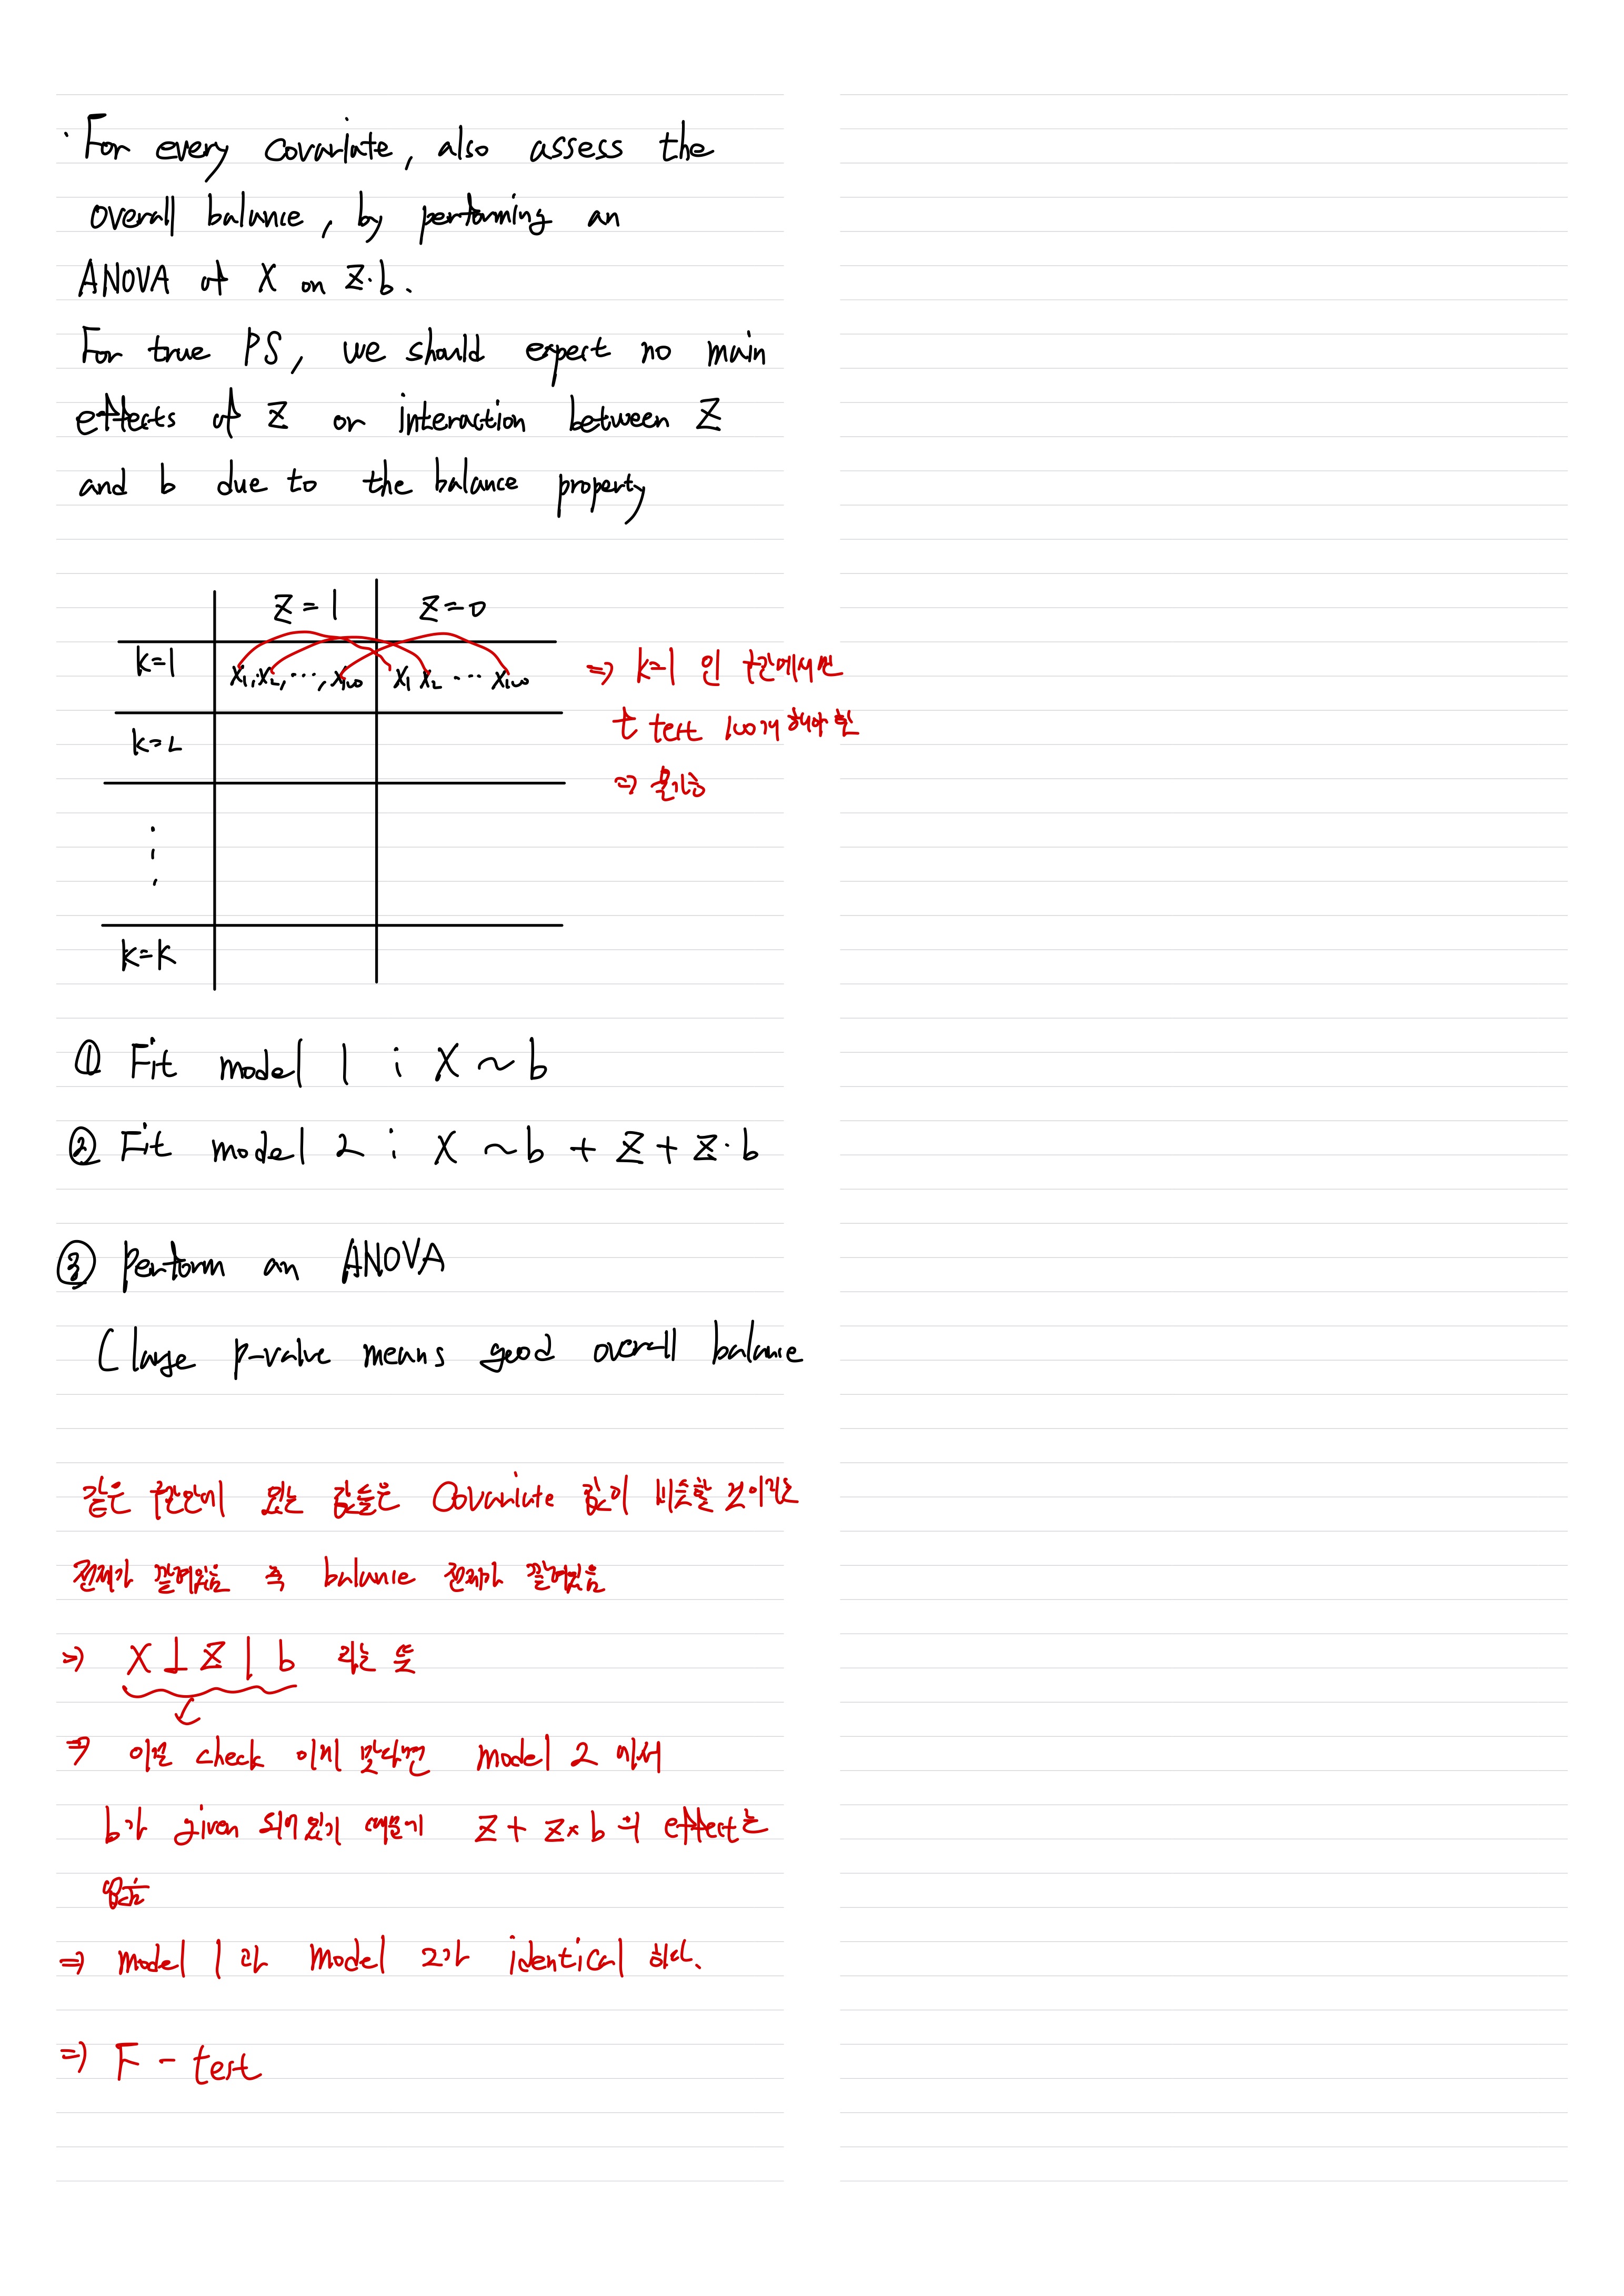 · For every covariate, also assess the
overall balance, by performing an
ANOVA of X on Z·b.
For true PS, we should expect no main
effects of Z or interaction between Z
and b due to the balance property
Z=1 Z=0
k=1 X₁, X₂, ···, X₁₀₀ X₁ X₂ ··· X₁₀₀ ⇒ k=1 인 구간에서만
t test 100개 해야 함
k=2
⇒ 불가능
⋮
k=K
① Fit model 1 ; X ~ b
② Fit model 2 ; X ~ b + Z + Z·b
③ Perform an ANOVA
( large p-value means good overall balance
같은 구간안에 있는 값들은 Covariate 값이 비슷할 것이라는
전제가 깔려있음 즉 balance 전제가 깔려있음
⇒ X ⊥ Z | b 라는 뜻
⇒ 이걸 check 이게 맞다면 model 2 에서
b가 given 되어있기 때문에 Z + Z×b 의 effect는
없음
⇒ model 1 과 model 2가 identical 하다.
⇒ F - test